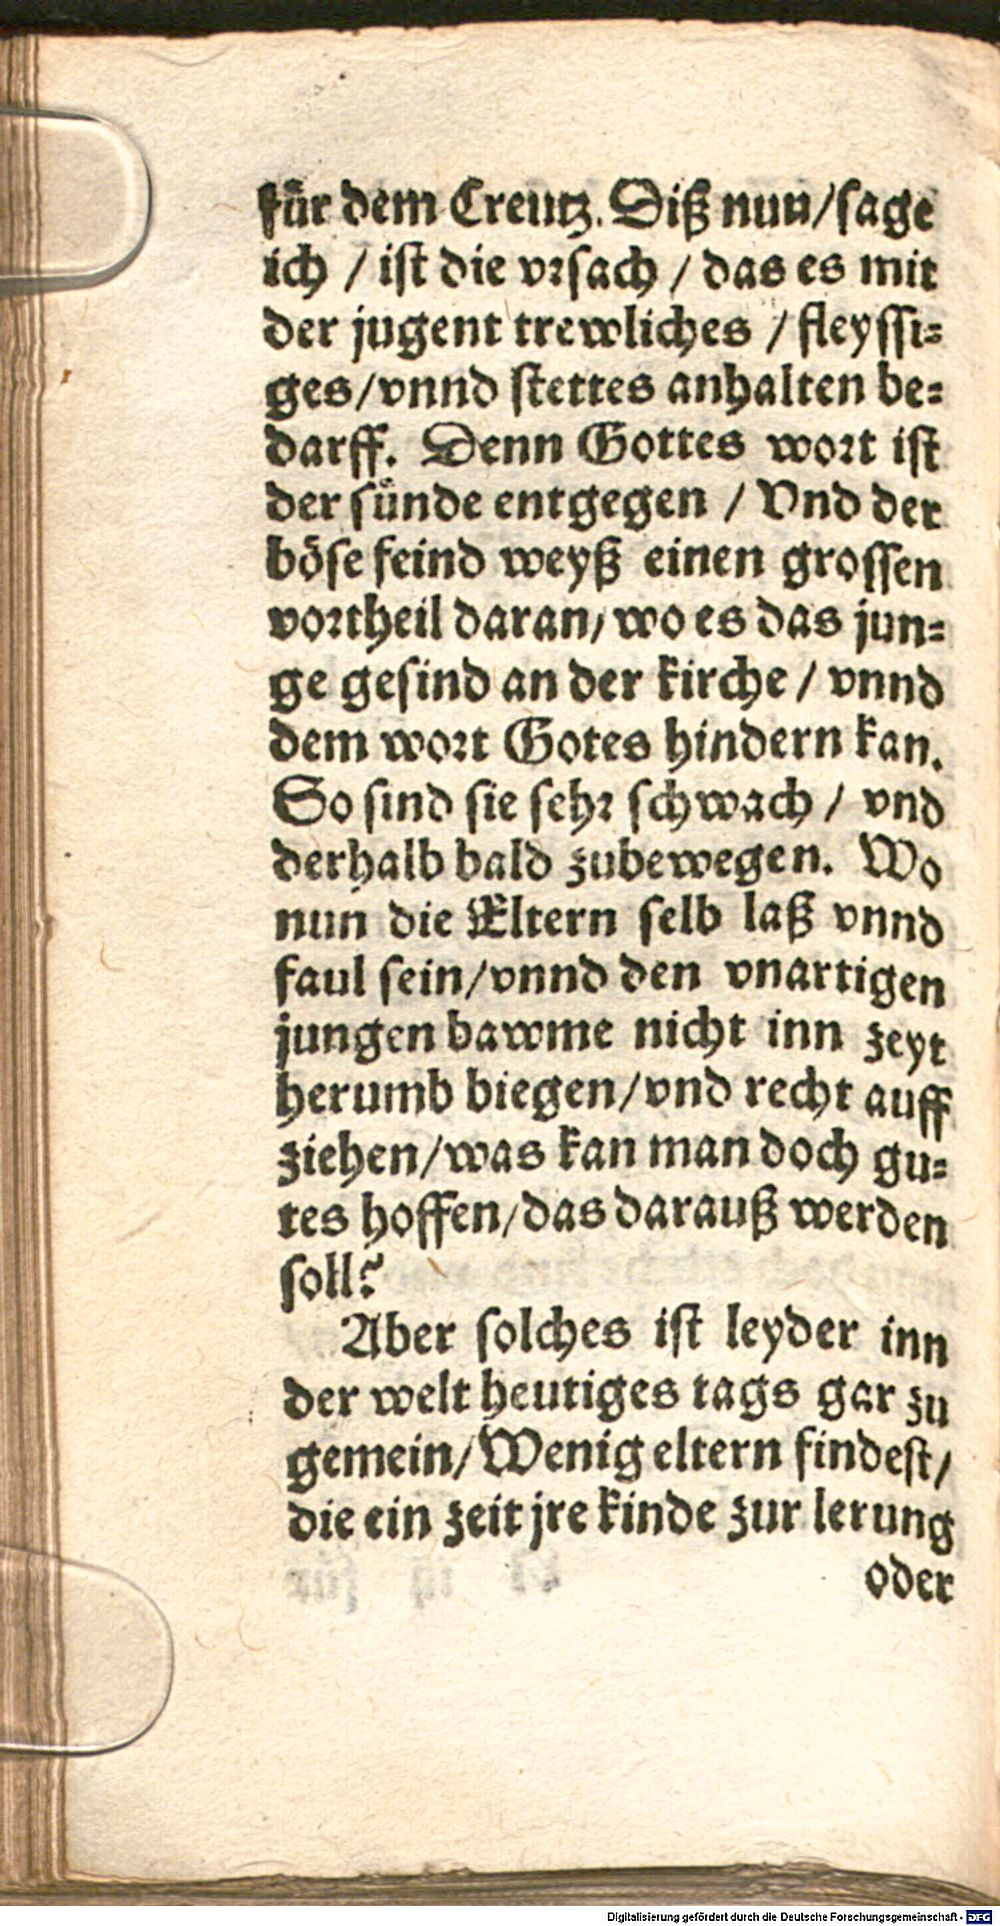 für dem Creutz. Diß nun/sage
ich / ist die vrsach / das es mit
der jugent trewliches / fleyssi-
ges/vnnd stettes anhalten be-
darff. Denn Gottes wort ist
der sünde entgegen / Vnd der
böse feind weyß einen grossen
vortheil daran/ wo es das jun-
ge gesind an der kirche / vnnd
dem wort Gotes hindern kan.
So sind sie sehr schwach / vnd
derhalb bald zubewegen. Wo
nun die Eltern selb laß vnnd
faul sein/vnnd den vnartigen
jungen bawme nicht inn zeyt
herumb biegen/vnd recht auff
ziehen/was kan man doch gu-
tes hoffen/das darauß werden
soll?
Aber solches ist leyder inn
der welt heutiges tags gar zu
gemein/Wenig eltern findest/
die ein zeit jre kinde zur lerung
oder
Digitalisierung gefördert durch die Deutsche Forschungsgemeinschaft - DFG